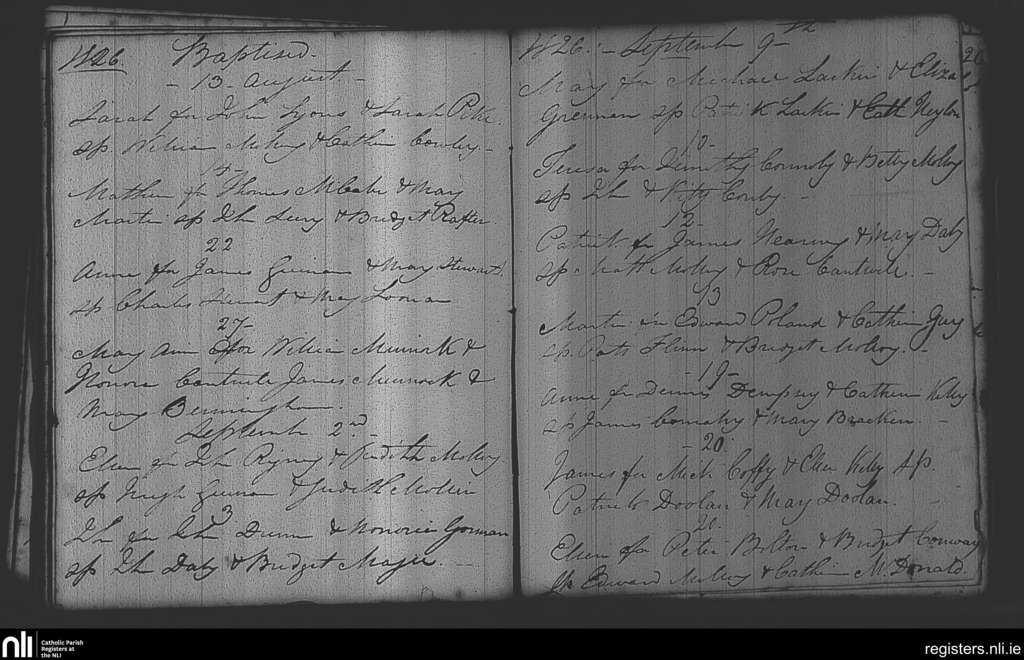 1826. Baptised.
- 13 August -
Sarah for John Lyons & Sarah Pike
sp. William Molloy & Cathin Conley -
14 -
Mathew for Thomas McCabe & Mary
Martin sp Jhn & Bridget Rafter
22
Anne for James Guinan & Mary Stewart
sp Charles Stewart & Mary
27 -
Mary Ann for William Minnock &
Honora Cantwile James Minnock &
Mary Bermingham.
September 2nd -
Ellen for Jhn & Judith Molloy
sp Hugh Guinan & Judith
3
Jhn for Jhn Dunn & Honoria Gorman
sp Jhn Daly & Bridget Maher. -
1826. - September 9th
Mary for Michael Larkin & Eliza
Grennan sp Patrick Larkin & Cath Neylon
10 -
Teresa for Timothy Connoly & Betty Molloy
sp Jhn & Kitty Conly. -
12 -
Patrick for James & Mary Daly
sp. Matt Molloy & Rose Cantwile. -
13
Martin for Edward Poland & Cathin Guy
sp. Patt Flinn & Bridget Molloy. -
19 -
Anne for Dennis Dempsey & Cathin Kelly
sp James & Mary Bracken. -
- 20.
James for Mich Coffy & Ellen Kelly sp
Patrick Doolan & Mary Doolan.
20.
Ellen for Peter Bolton & Bridget Conway
sp Edward Molloy & Cathin McDonald.
nli
Catholic Parish
Registers at
the NLI
registers.nli.ie